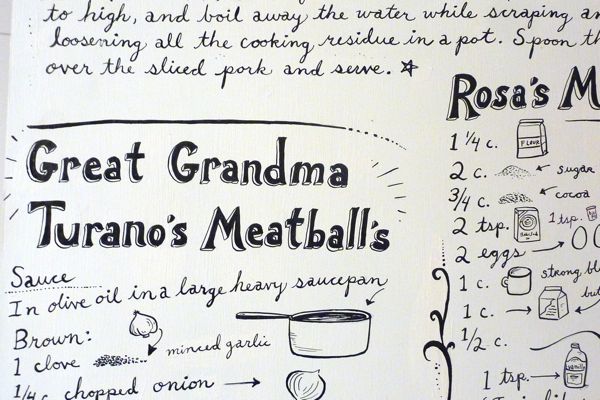 to high, and boil away the water while scraping an
loosening all the cooking residue in a pot. Spoon th
over the sliced pork and serve.
Great Grandma
Turano's Meatball's
Sauce
In olive oil in a large heavy saucepan
Brown:
1 clove minced garlic
1/4 c. chopped onion
Rosa's M
1 1/4 c. FLOUR
2 c. sugar
3/4 c. cocoa
2 tsp. 1 tsp.
2 eggs
1 c. strong bl
1 c. but
1/2 c.
1 tsp. vanilla